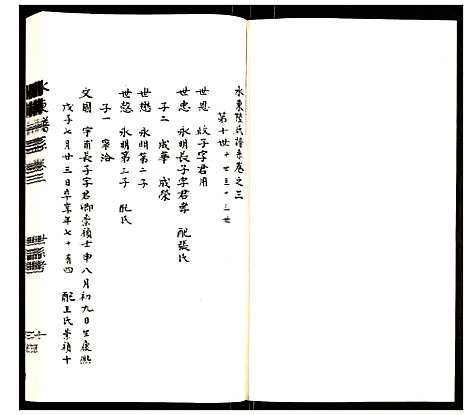 水東陸氏譜系卷之三
第十世十世至十三世
世恩 蛟子字君用
世忠 永明長子字君雲 配張氏
子二 成華 成榮
世懋 永明第二子
子一 寧洛
世懿 永明第三子 配氏
文圖 宇甫長子字君卿崇禎壬申八月初九日生康熙
戊子七月廿三日卒享年七十有四 配王氏崇禎十
水東譜